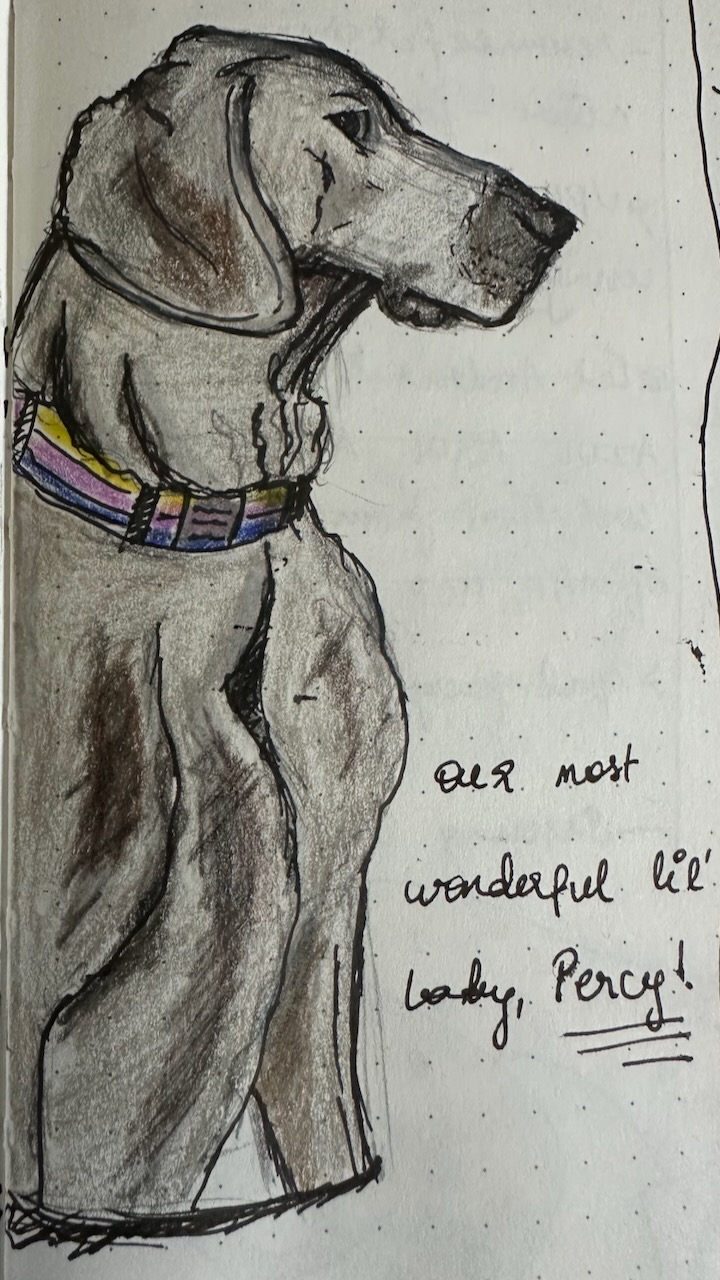 our most
wonderful lil'
baby, Percy!